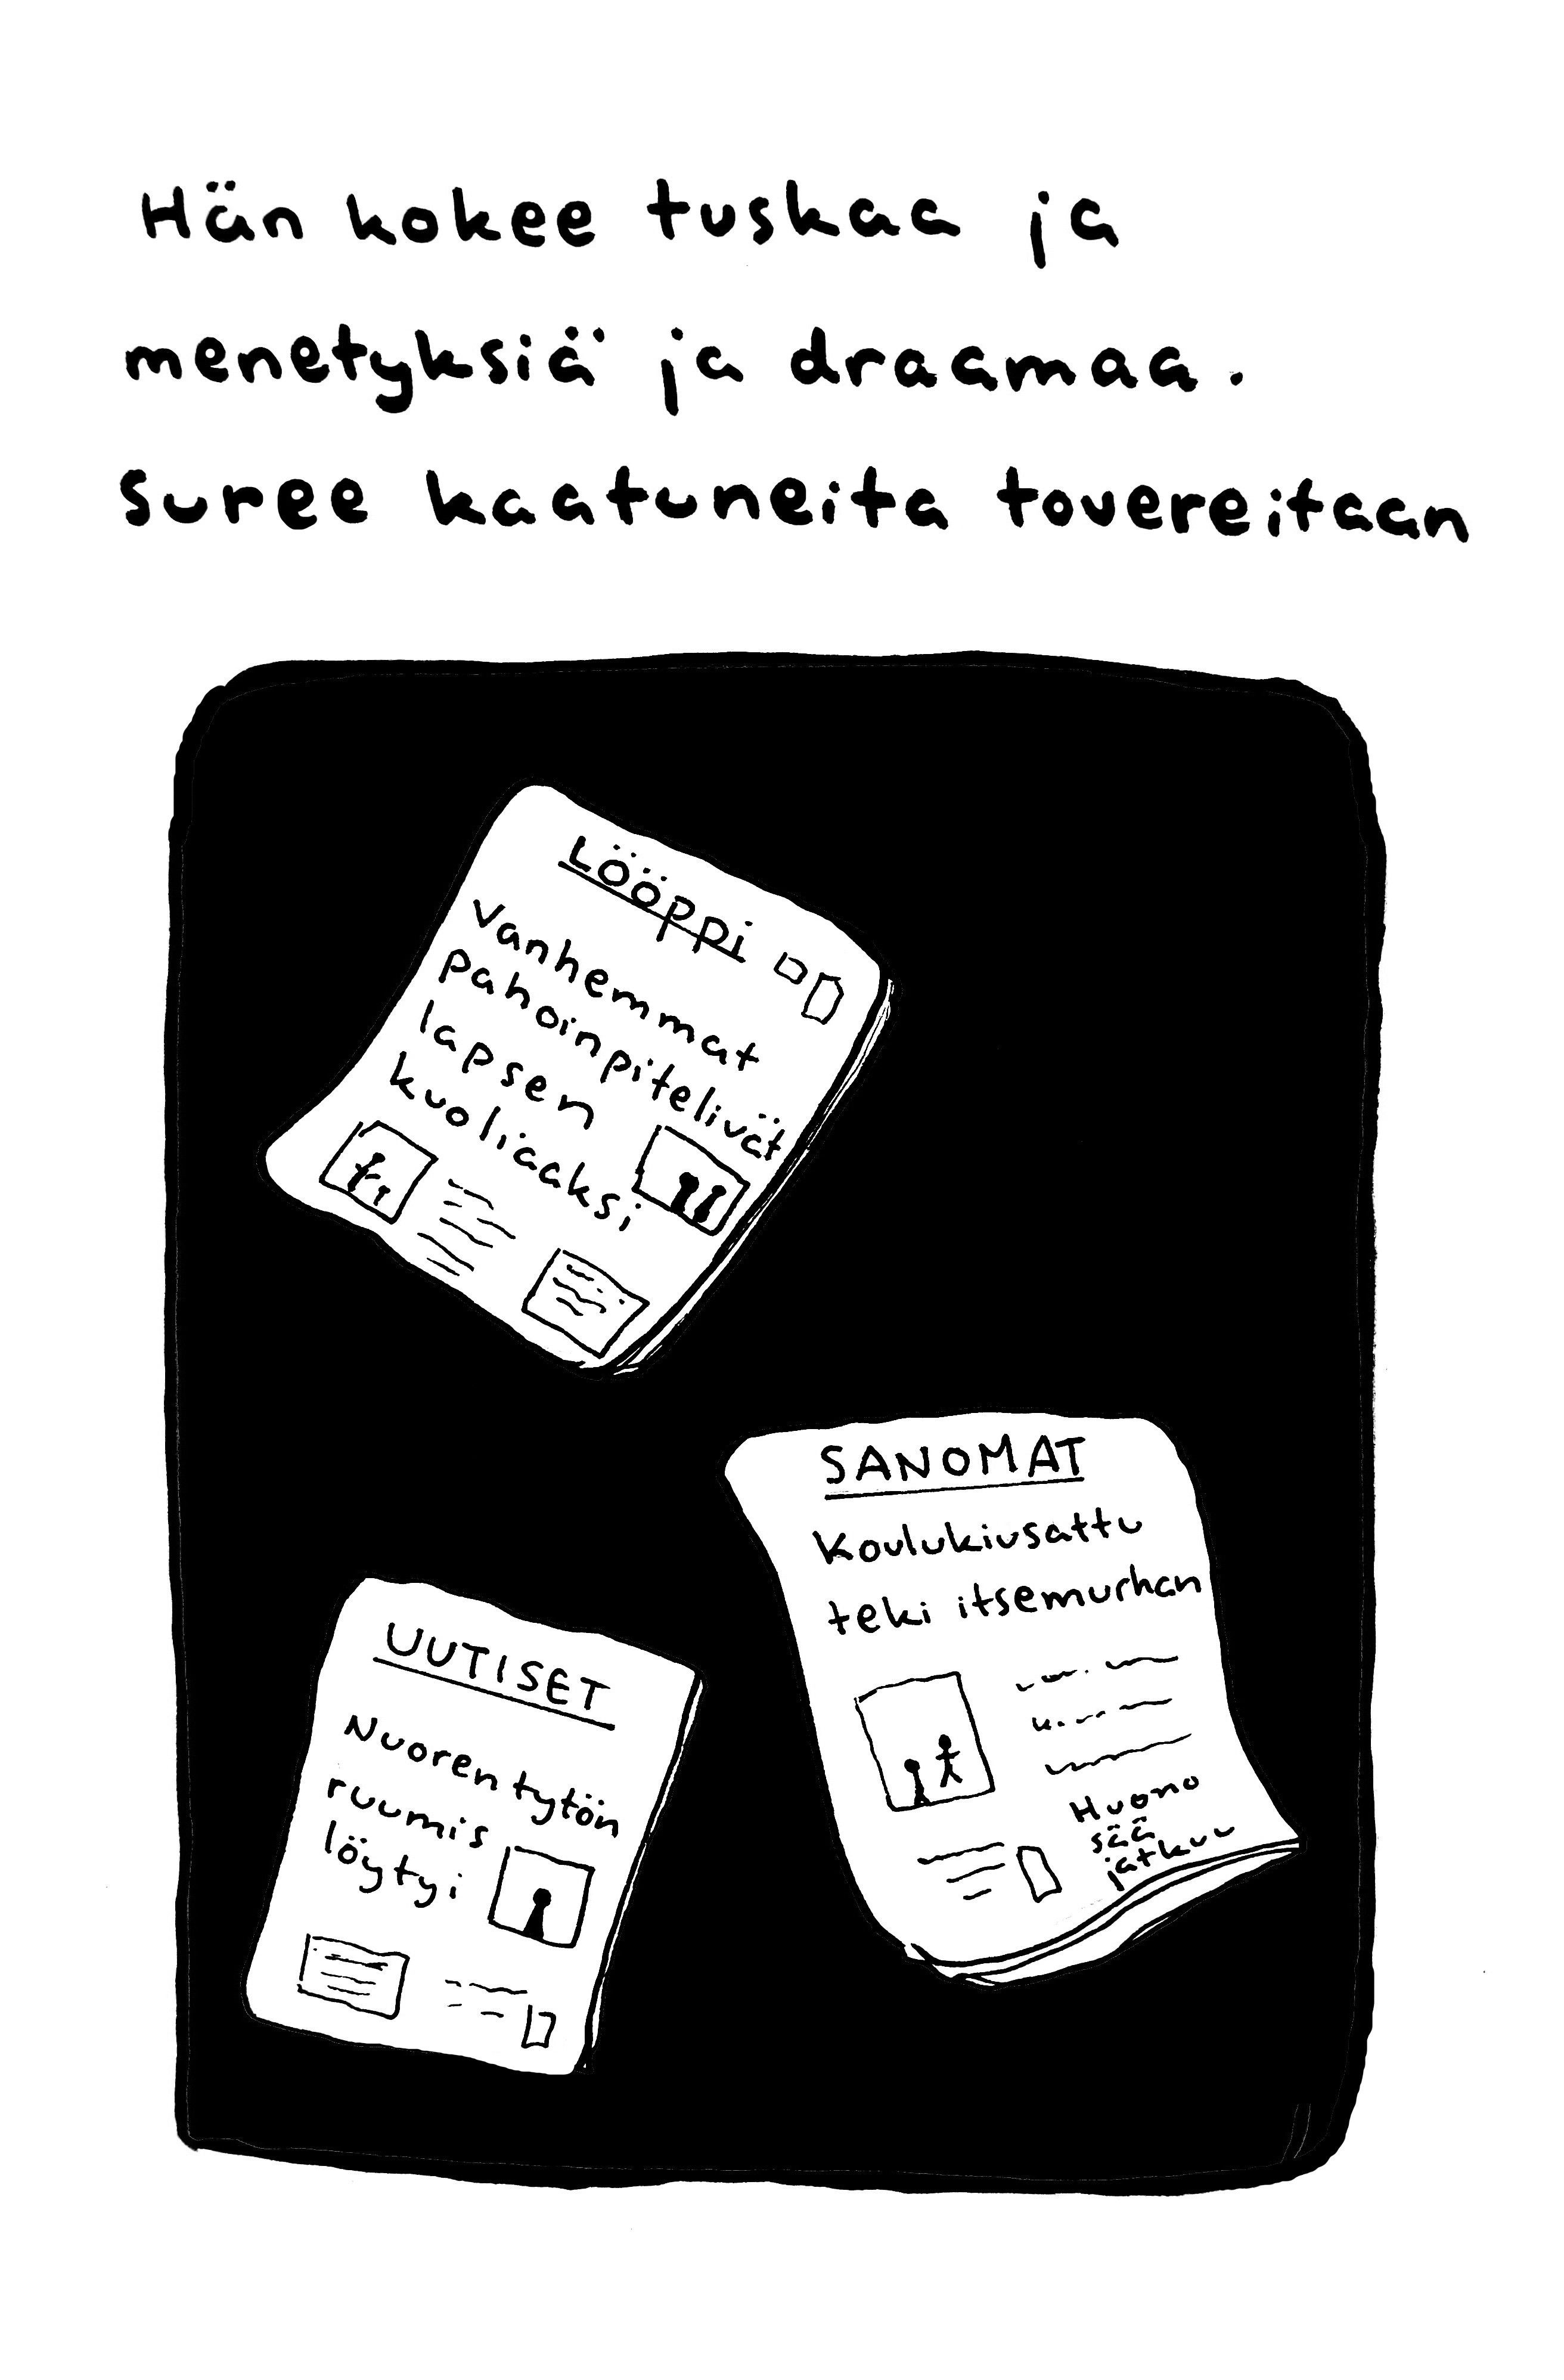 Hän kokee tuskaa ja
menetyksiä ja draamaa.
Suree kaatuneita tovereitaan
Lööppi
Vanhemmat
pahoinpitelivät
lapsen
kuoliaaksi
SANOMAT
Koulukiusattu
teki itsemurhan
Huono
sää
jatkuu
UUTISET
Nuoren tytön
ruumis
löytyi